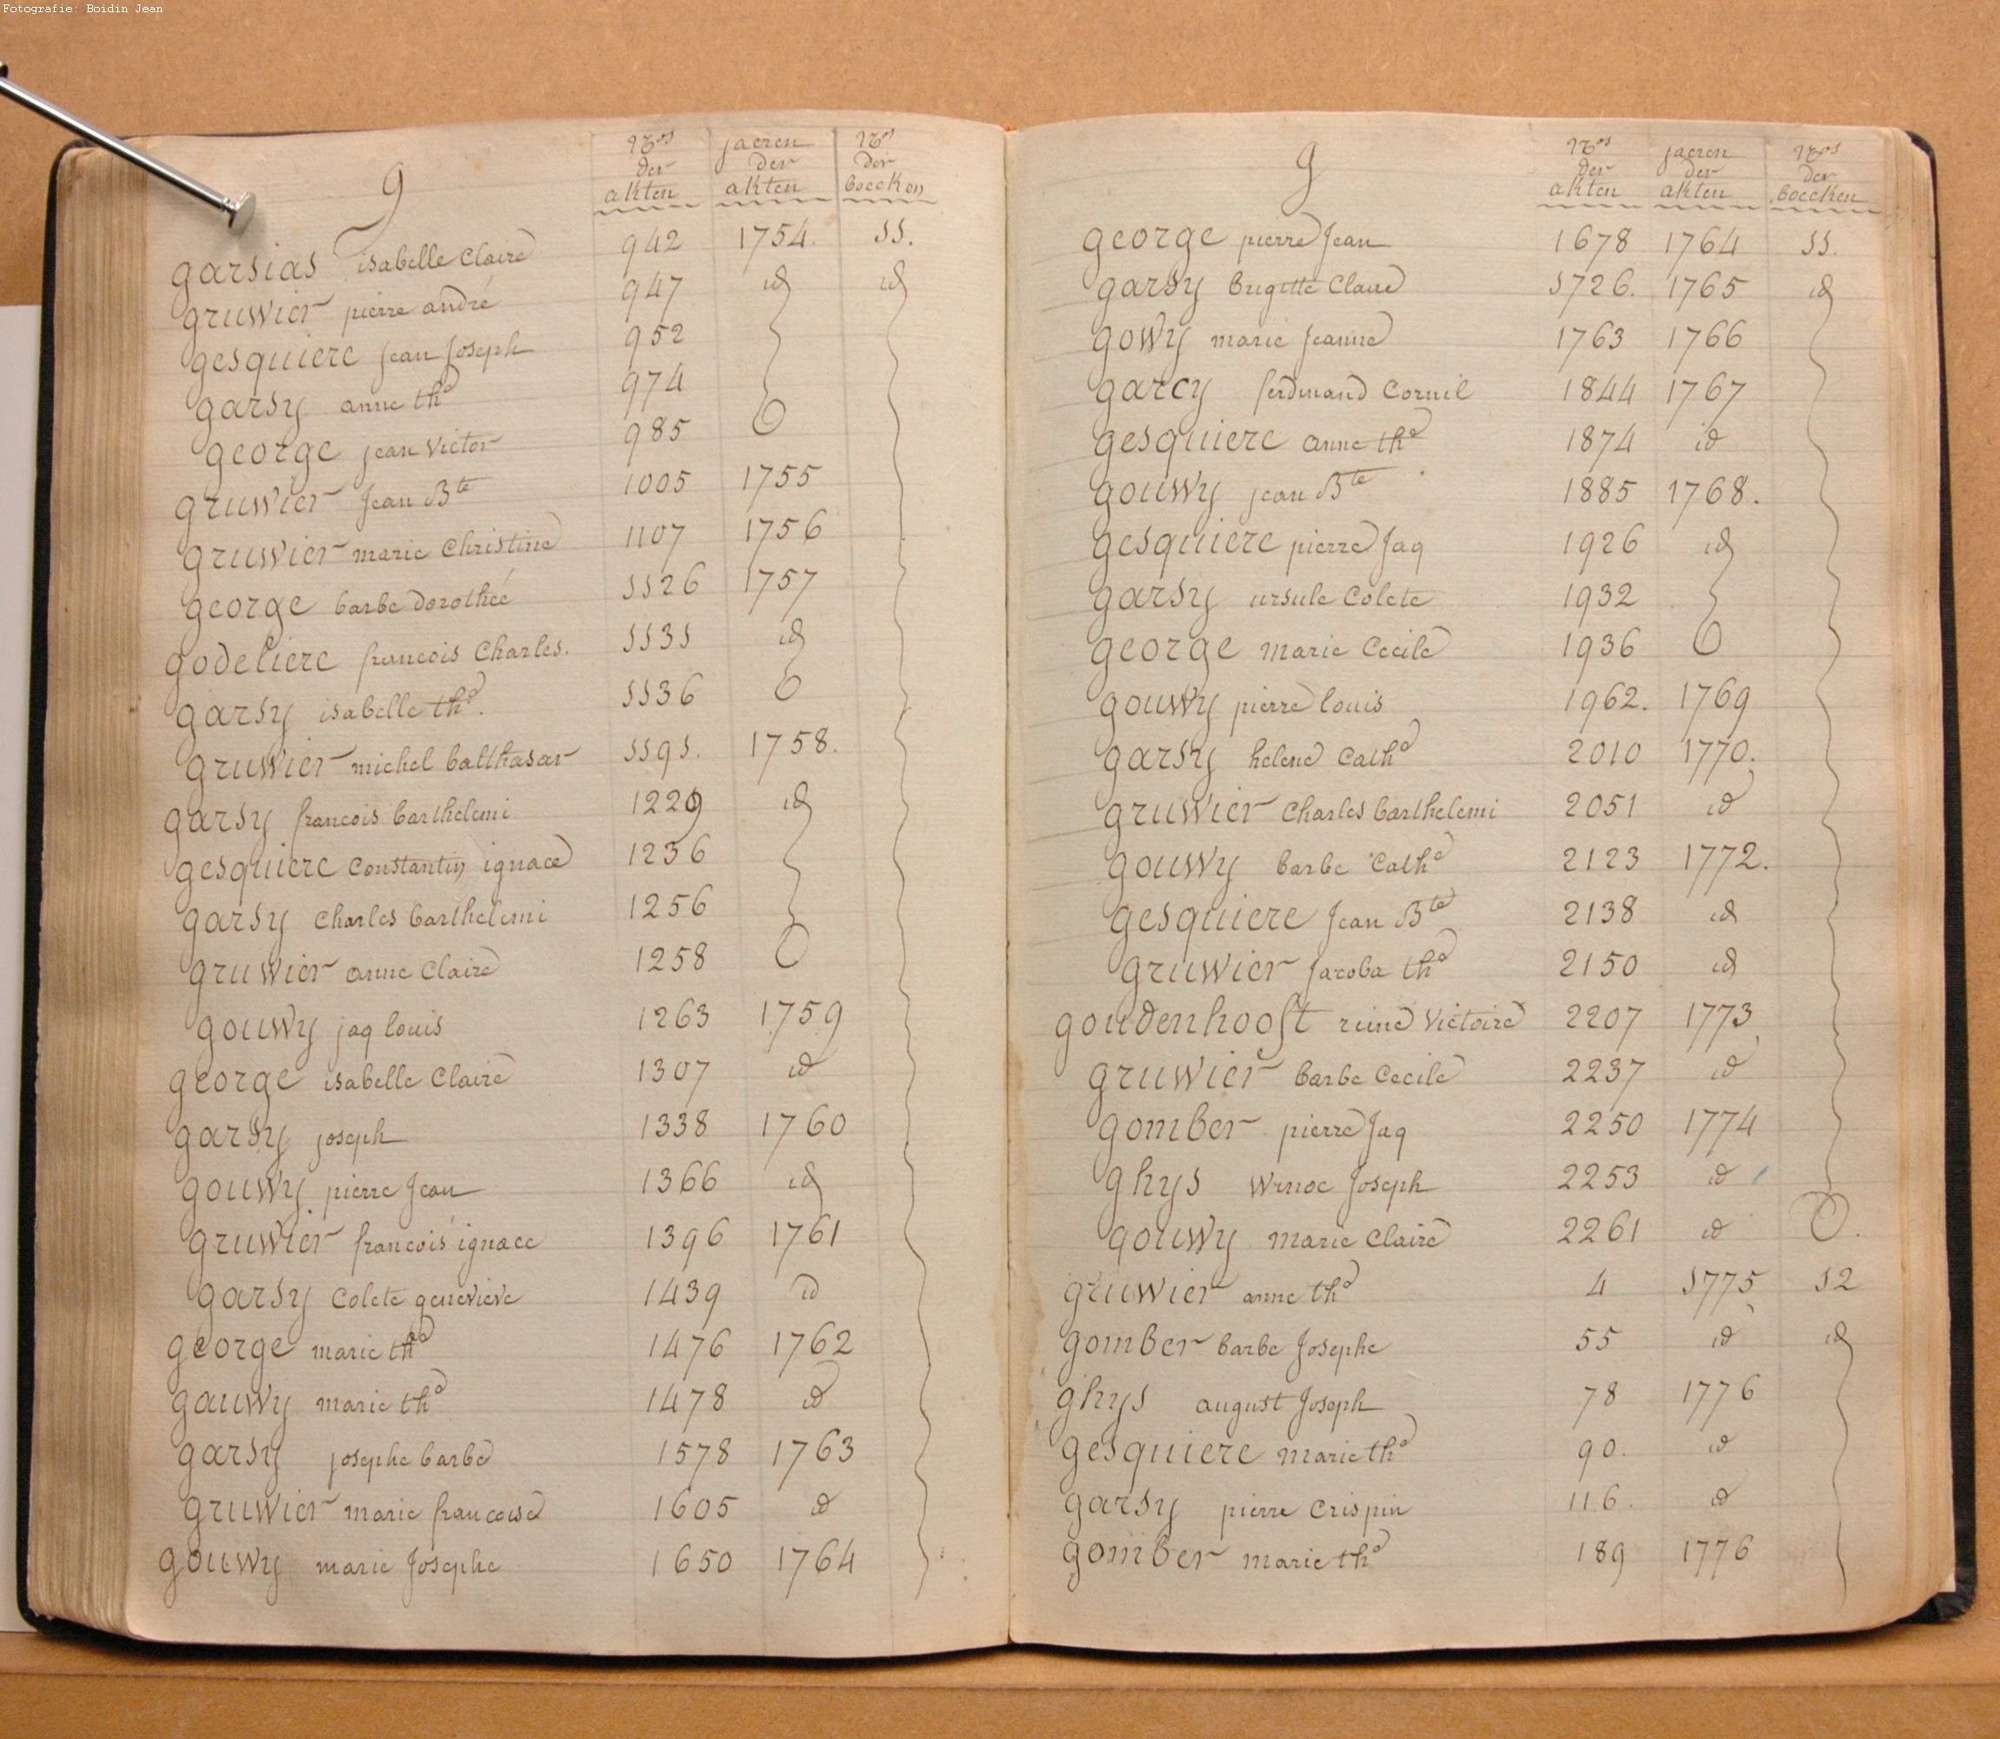 Fotografie: Boidin Jean
g
Nos der akten
jaeren der akten
Nos der boecken
garsias isabelle Claire 942 1754. 11.
gruwier pierre andré 947 id id
gesquiere jean Joseph 952
garsy anne the 974
george jean Victor 985
gruwier Jean Bte 1005 1755
gruwier marie Christine 1107 1756
george barbe dorothée 1126 1757
godeliere francois Charles. 1131 id
garsy isabelle the. 1136
gruwier michel balthasar 1191. 1758.
garsy francois barthelemi 1229 id
gesquiere Constantin ignace 1236
garsy Charles barthelemi 1256
gruwier anne Claire 1258
gouwy jaq louis 1263 1759
george isabelle Claire 1307 id
garsy joseph 1338 1760
gouwy pierre Jean 1366 id
gruwier francois ignace 1396 1761
garsy Colete genevieve 1439 id
george marie the 1476 1762
gauwy marie the 1478 id
garsy josephe barbe 1578 1763
gruwier marie francoise 1605 id
gouwy marie Josephe 1650 1764
g
Nos der akten
jaeren der akten
Nos der boecken
george pierre Jean 1678 1764 11.
garsy brigitte Claire 1726. 1765 id
gowy marie Jeanne 1763 1766
garcy ferdinand Cornil 1844 1767
gesquiere anne the 1874 id
gouwy jean Bte 1885 1768.
gesquiere pierre Jaq 1926 id
garsy ursule Colete 1932
george marie Cecile 1936
gouwy pierre louis 1962. 1769
garsy helene Cathe 2010 1770.
gruwier Charles barthelemi 2051 id
gouwy barbe Cathe 2123 1772.
gesquiere Jean Bte 2138 id
gruwier Jacoba the 2150 id
goudenhooft reine Victoire 2207 1773
gruwier barbe Cecile 2237 id
gomber pierre Jaq 2250 1774
ghys winoc Joseph 2253 id
gouwy marie Claire 2261 id
gruwier anne the 4 1775 12
gomber barbe Josephe 55 id id
ghys august Joseph 78 1776
gesquiere marie the 90. id
garsy pierre Crispin 116. id
gomber marie the 189 1776